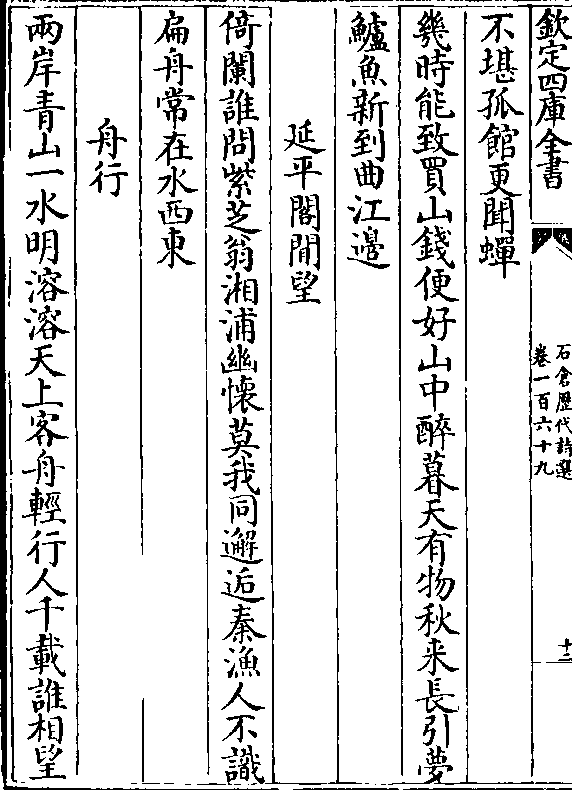 欽定四庫全書
石倉歷代詩選
卷一百六十九
十二
不堪孤館更聞蟬
幾時能致買山錢便好山中醉暮天有物秋来長引夢
鱸魚新到曲江邉
延平閣閒望
倚闌誰問紫芝翁湘浦幽懷莫我同邂逅秦漁人不識
扁舟常在水西東
舟行
兩岸青山一水明溶溶天上客舟輕行人千載誰相望